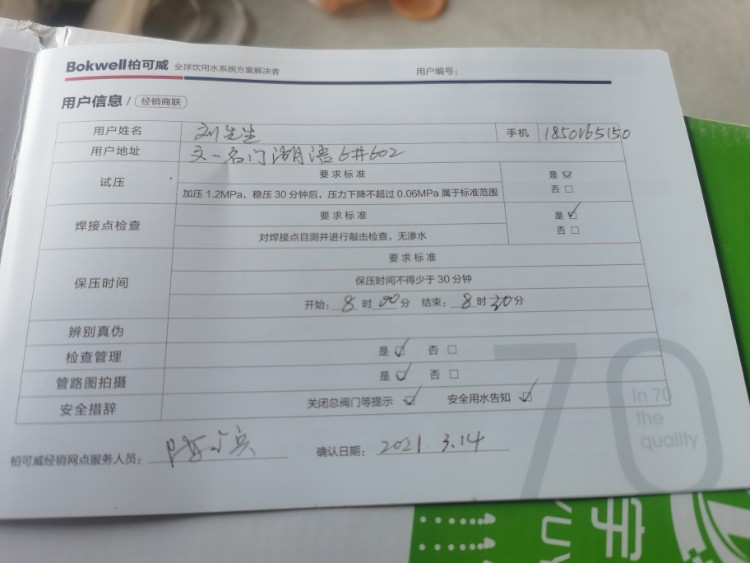 Bokwell柏可威 全球饮用水系统方案解决者 用户编号：
用户信息 / 经销商联
用户姓名 刘先生 手机
用户地址 文一名门湖语6#602
试压 要求标准 是 否
加压 1.2MPa，稳压 30 分钟后，压力下降不超过 0.06MPa 属于标准范围
焊接点检查 要求标准 是 否
对焊接点目测并进行敲击检查，无渗水
保压时间 要求标准
保压时间不得少于 30 分钟
开始：8 时 00 分 结束：8 时 30 分
辨别真伪
检查管理 是 否
管路图拍摄 是 否
安全措辞 关闭总阀门等提示 安全用水告知
70
In 70
the
quality
柏可威经销网点服务人员： 确认日期：2021.3.14
宇
YUY